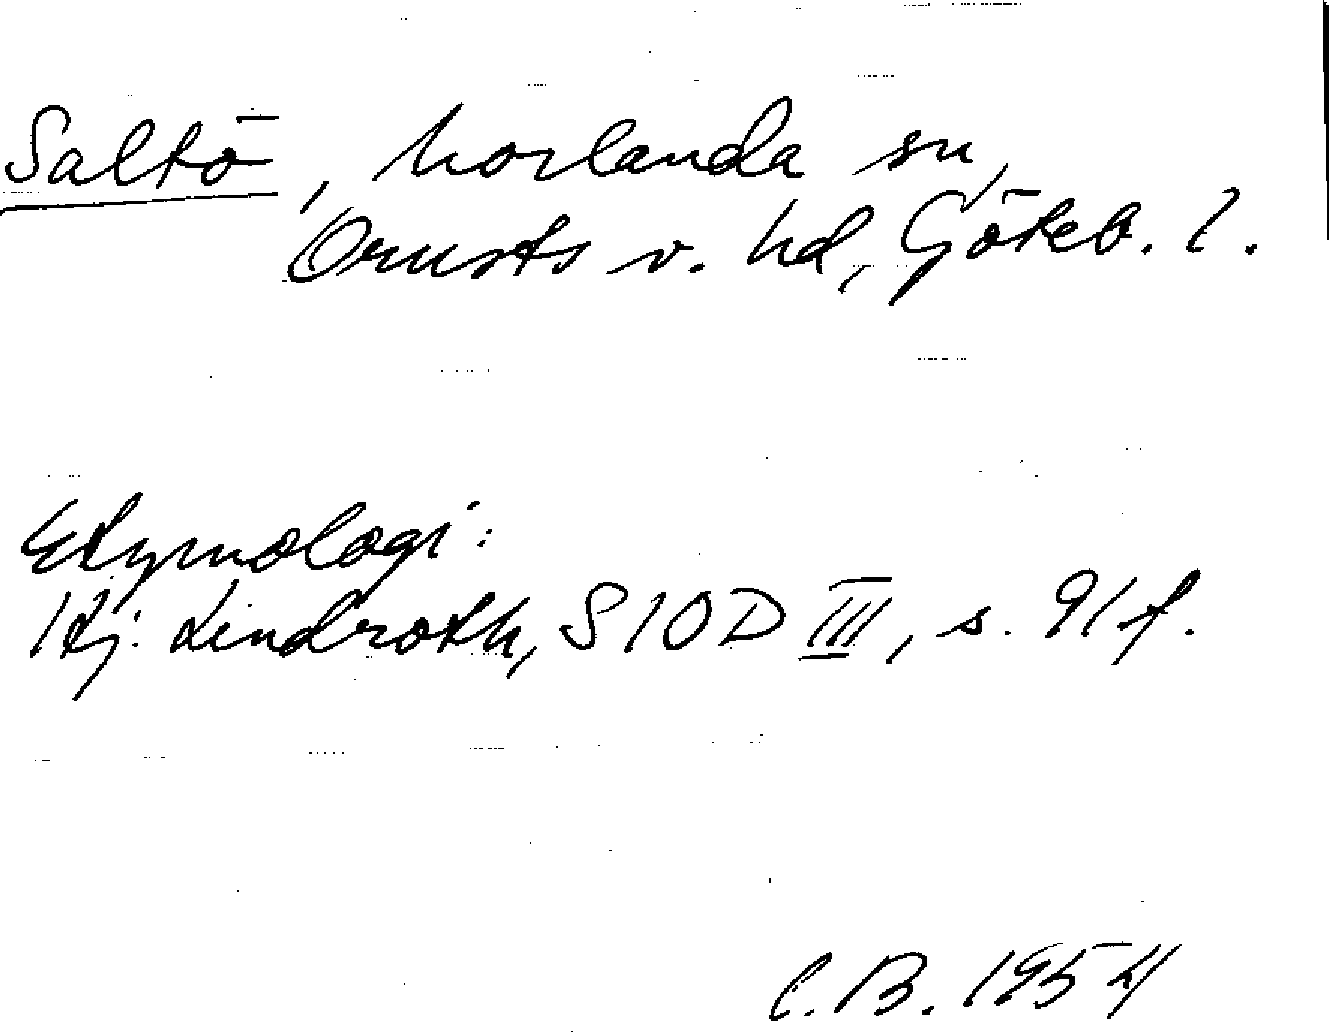 Saltö, Morlanda sn,
Orusts v. hd, Göteb. l.
Etymologi:
Hj. Lindroth, SIOD III, s. 91 f.
C.B. 1954